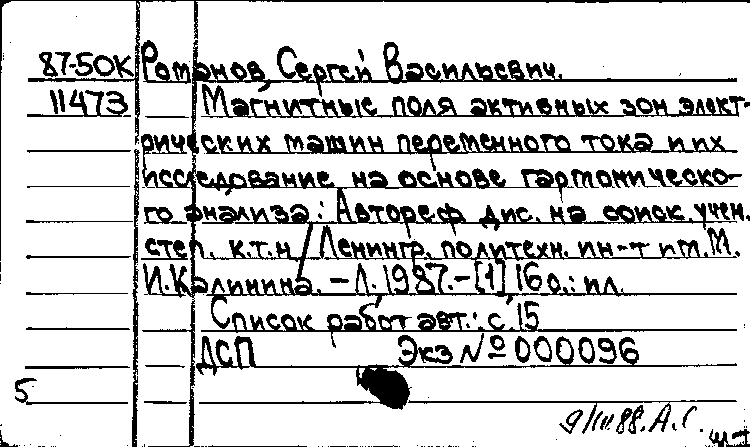 87-50К Романов, Сергей Васильевич.
11473 Магнитные поля активных зон элект-
рических машин переменного тока и их
исследование на основе гармоническо-
го анализа: Автореф. дис. на соиск. учен.
степ. к.т.н / Ленингр. политехн. ин-т им. М.
И. Калинина. – Л. 1987. – [1] 16 с.: ил.
Список работ авт.: с. 15
ДСП Экз № 000096
5
88. А. С.